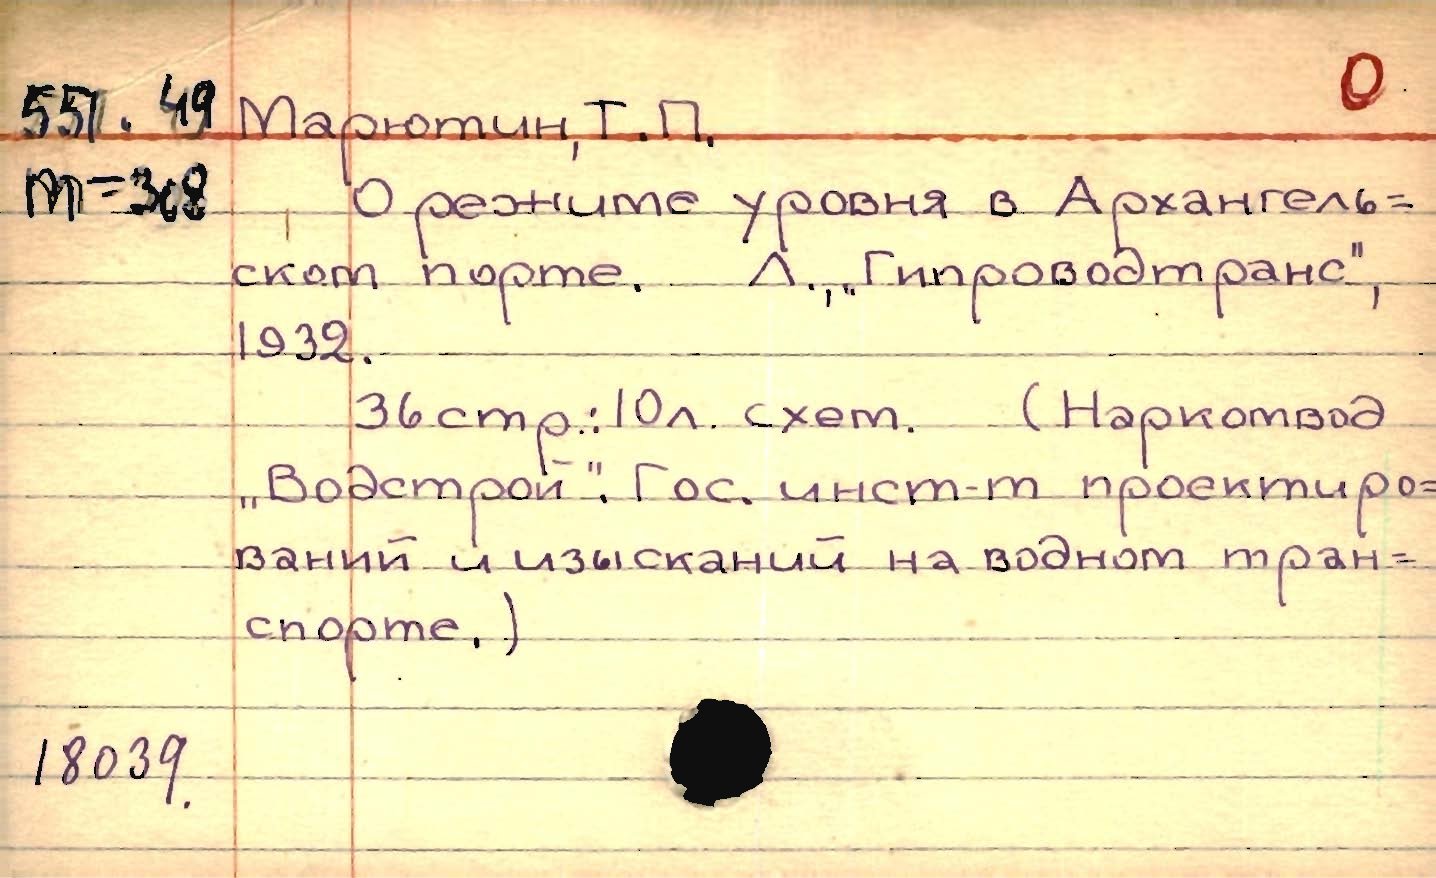 О
551.49 Марютин, Т.П.
М=308
О режиме уровня в Архангель=
ском порте. Л., „Гипроводтранс",
1932.
36 стр.: 10 л. схем. (Наркомвод
„Водстрой". Гос. инст-т проектиро=
ваний и изысканий на водном тран=
спорте.)
18039.